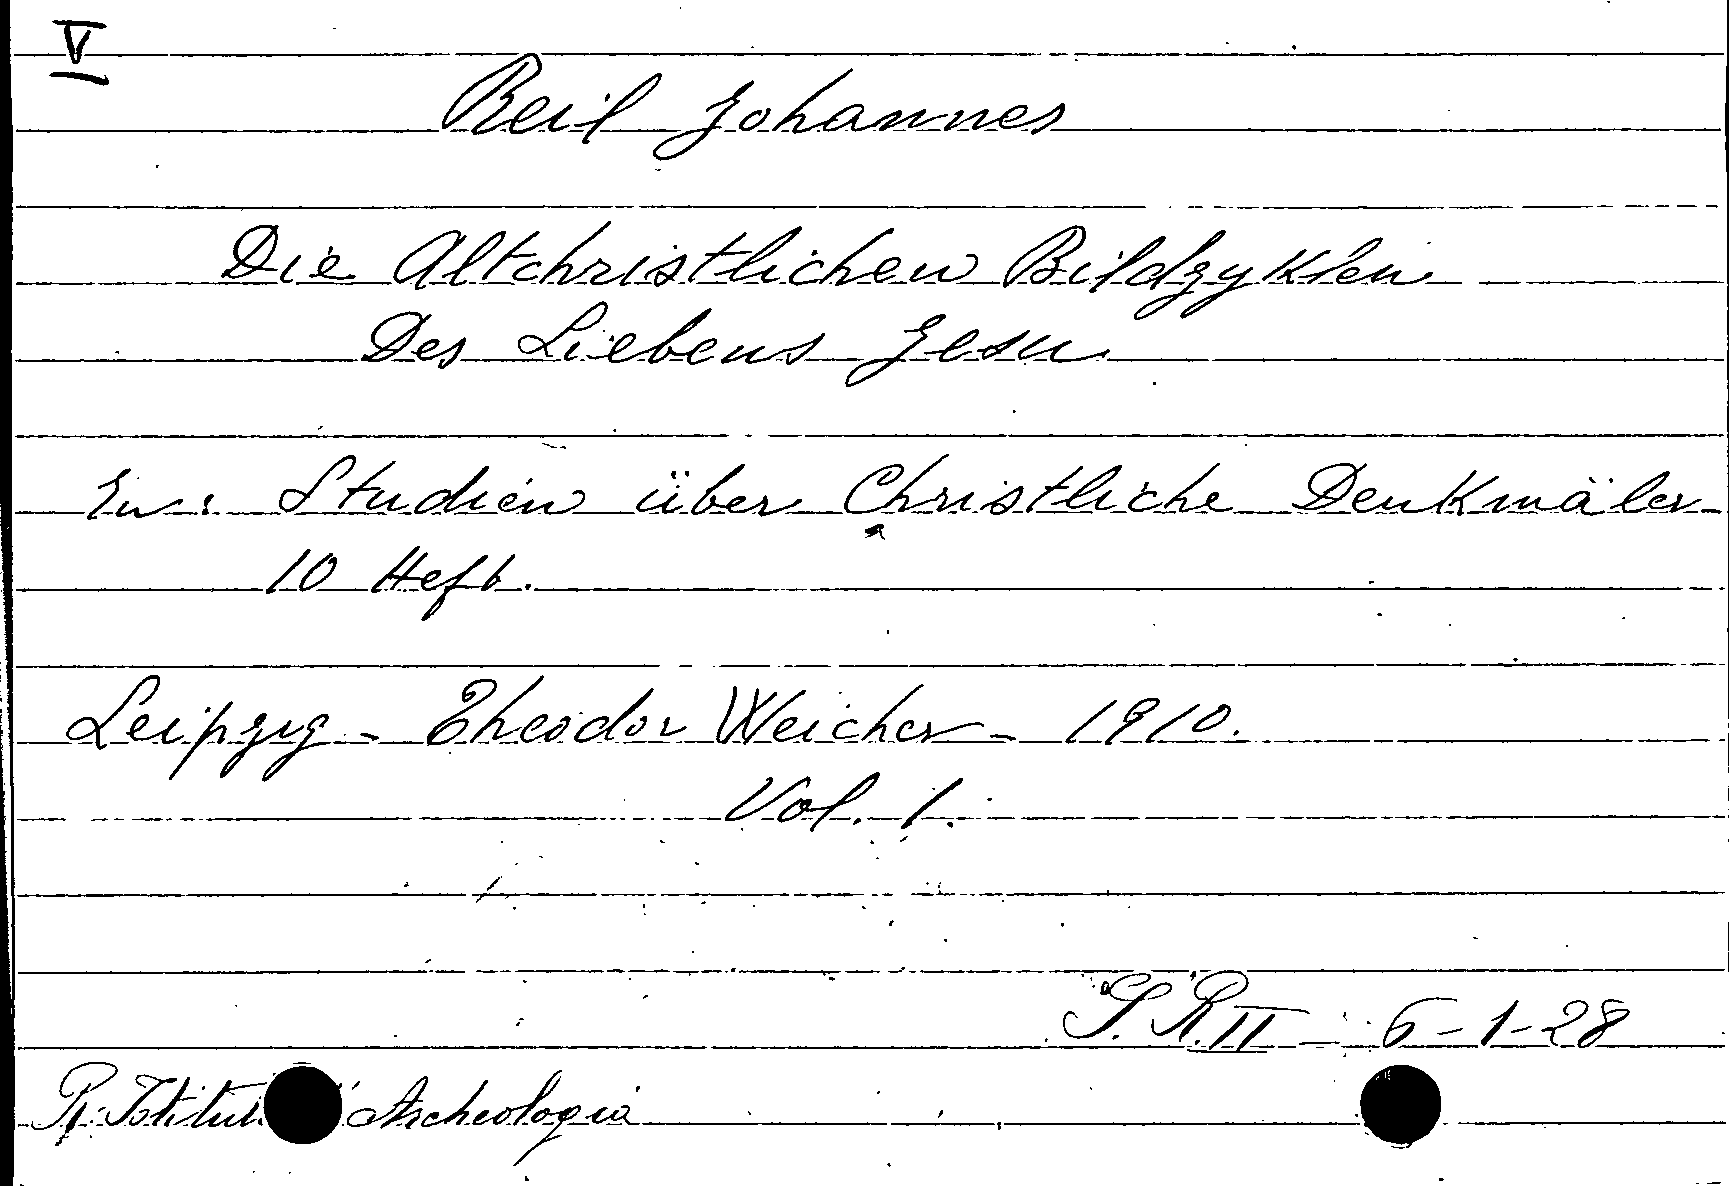 V
Reil Johannes
Die Altchristlichen Bildzyklen
Des Liebens Jesu
In: Studien über Christliche Denkmäler
10 Heft.
Leipzig - Theodor Weicher - 1910.
Vol. 1.
S. R. II - 6-1-28
R. Istitut Archeologia